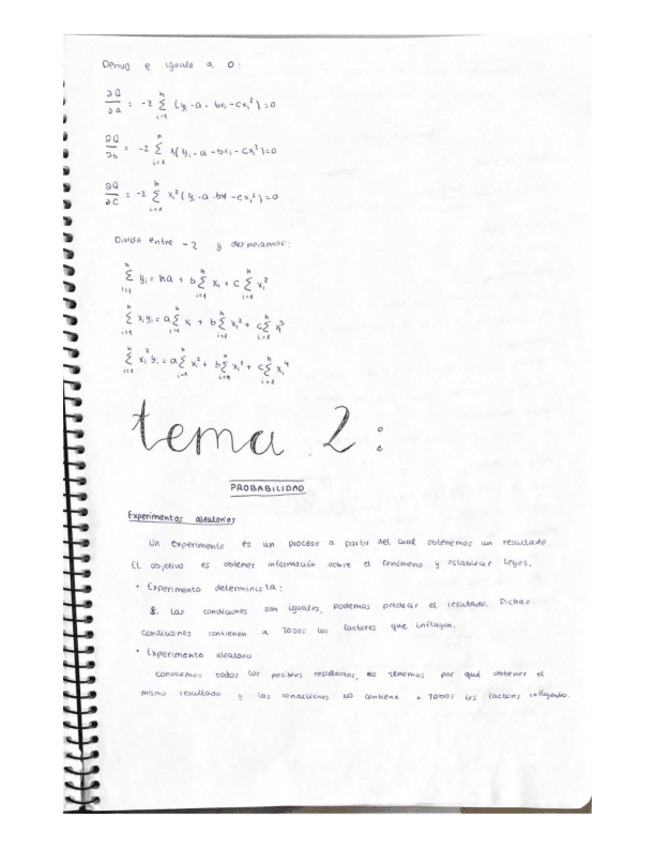 Derivo e igualo a 0:
∂Q/∂a = -2 Σ_{i=1}^{n} (yi - a - bxi - cxi²) = 0
∂Q/∂b = -2 Σ_{i=1}^{n} xi(yi - a - bxi - cxi²) = 0
∂Q/∂c = -2 Σ_{i=1}^{n} xi²(yi - a - bxi - cxi²) = 0
Divido entre -2 y despejamos:
Σ_{i=1}^{n} yi = na + b Σ_{i=1}^{n} xi + c Σ_{i=1}^{n} xi²
Σ_{i=1}^{n} xiyi = a Σ_{i=1}^{n} xi + b Σ_{i=1}^{n} xi² + c Σ_{i=1}^{n} xi³
Σ_{i=1}^{n} xi²yi = a Σ_{i=1}^{n} xi² + b Σ_{i=1}^{n} xi³ + c Σ_{i=1}^{n} xi⁴
tema 2:
PROBABILIDAD
Experimentos aleatorios
Un experimento es un proceso a partir del cual obtenemos un resultado.
El objetivo es obtener información sobre el fenómeno y establecer leyes.
• Experimento determinista:
Si las condiciones son iguales, podemos predecir el resultado. Dichas
condiciones contienen a TODOS los factores que influyen.
• Experimento aleatorio
Conocemos todos los posibles resultados, no tenemos por qué obtener el
mismo resultado y las condiciones NO contiene a TODOS los factores influyendo.